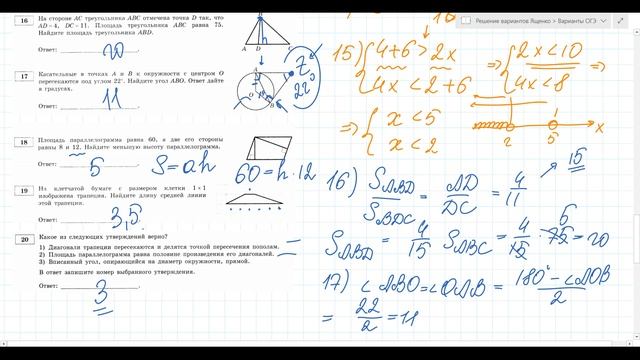 Решение вариантов Ященко > Варианты ОГЭ
16
На стороне AC треугольника ABC отмечена точка D так, что
AD=4, DC=11. Площадь треугольника ABC равна 75.
Найдите площадь треугольника ABD.
Ответ: 20
B
A D C
17
Касательные в точках A и B к окружности с центром O
пересекаются под углом 22°. Найдите угол ABO. Ответ дайте
в градусах.
Ответ: 11
A
O
B
22°
18
Площадь параллелограмма равна 60, а две его стороны
равны 8 и 12. Найдите меньшую высоту параллелограмма.
Ответ: 5
S=ah
60=h·12
19
На клетчатой бумаге с размером клетки 1×1
изображена трапеция. Найдите длину средней линии
этой трапеции.
Ответ: 3,5
20
Какое из следующих утверждений верно?
1) Диагонали трапеции пересекаются и делятся точкой пересечения пополам.
2) Площадь параллелограмма равна половине произведения его диагоналей.
3) Вписанный угол, опирающийся на диаметр окружности, прямой.
В ответ запишите номер выбранного утверждения.
Ответ: 3
15) { 4+6>2x
4x<2+6
=> { 2x<10
4x<8 =>
=> { x<5
x<2
2 5 x
16) S ABD / S BDC = AD/DC = 4/11
15
S ABD = 4/15 S ABC = 4/15 · 75 = 20
5
17) ∠ABO=∠OAB= 180°-∠AOB / 2
= 22/2 = 11